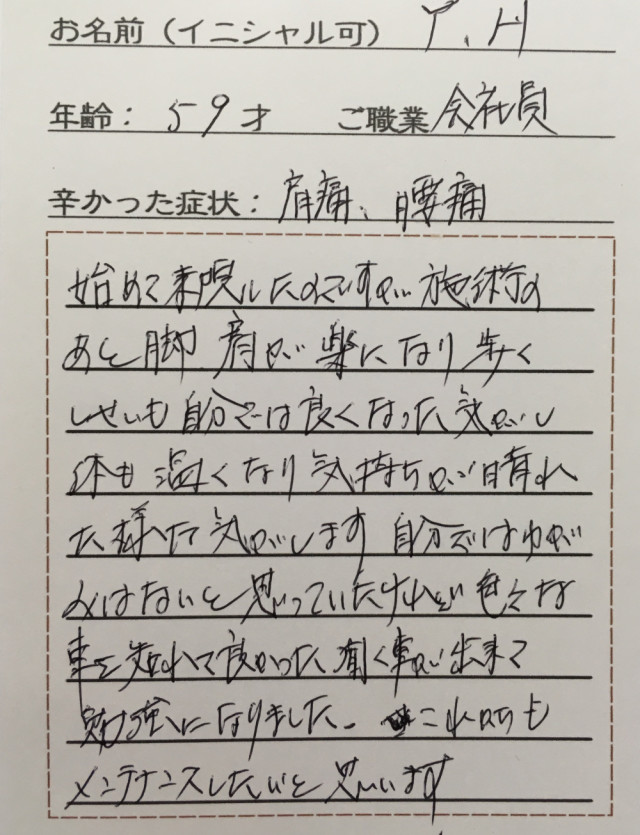 お名前（イニシャル可） Y、H
年齢： 59才 ご職業 会社員
辛かった症状： 肩痛、腰痛
始めて来院したのですが 施術の
あと脚、肩が楽になり歩く
しせいも自分では良くなった気がし
体も温くなり気持ちが晴れ
た様な気がします 自分ではゆが
みはないと思っていたけれど色々な
事を知れて良かった 聞く事が出来て
勉強になりました。 これからも
メンテナンスしたいと思います